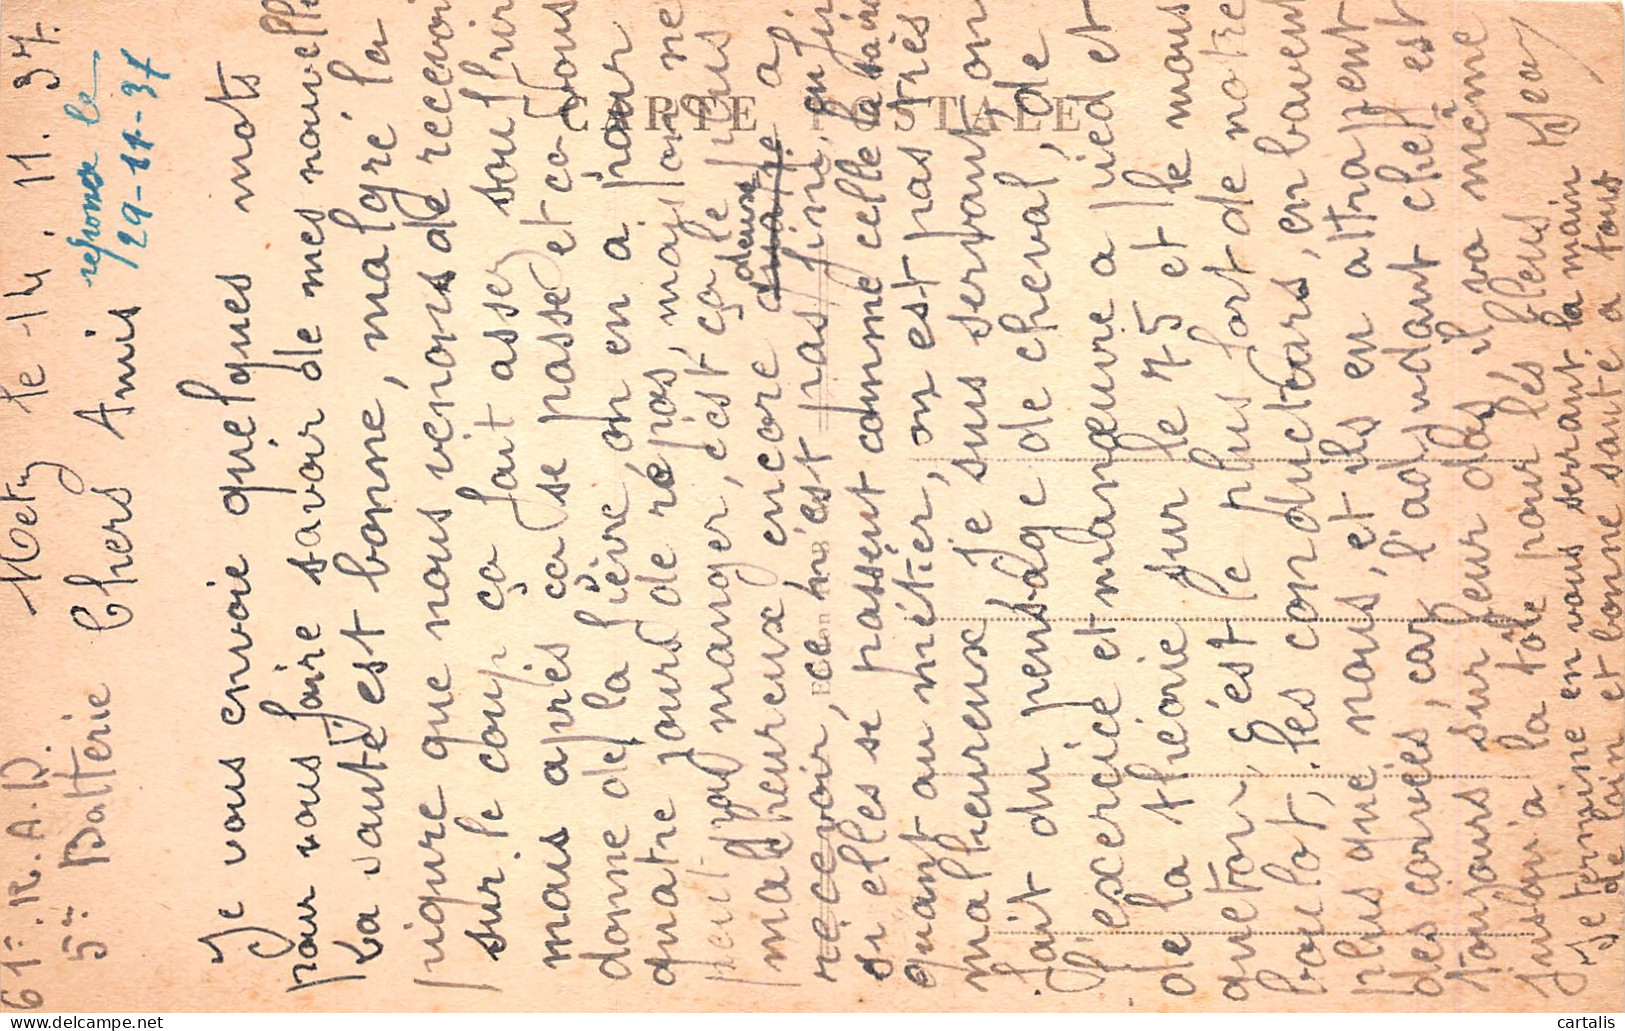 61e R.A.D. Metz le 14.11.37.
5me Batterie
reponse le
29-11-37
Chers Amis
Je vous envoie quélques mots
pour vous faire savoir de mes nouvelles
La santé est bonne, malgré la
piqure que nous venons de recevoir
sur le coup ça fait assez souffrir
mais aprés ca se passe et ca vous
donne de la fiévre, on en a pour
quatre jours de répos, mais on ne
peut pas manger, c'ést ça le plus
malheureux encore deux a
recevoir, ce n'ést pas fini, enfin
si elles sé passent comme celle la sa ira
quant au métier, on est pas trés
malheureux je suis servant on
fait du pensage de cheval, de
l'exercice et manœuvre a pied et
de la théorie sur le 75 et le mous
queton, c'ést le plus fort de notre
boulot, les conductears, en bavent
plus que nous, et ils en attrapent
des corvées, car l'adjudant chef est
toujours sur leur dos il va même
jusqu'a la tôle pour lés bleus
Je termine en vous serrant la main Jean
de loin et bonne santé a tous
CARTE POSTALE
cartalis